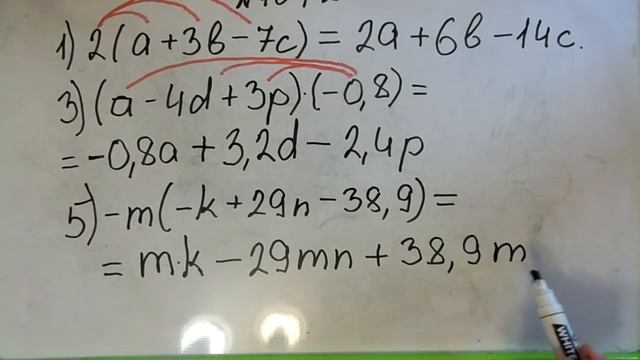 1) 2(a+3b-7c)=2a+6b-14c.
3) (a-4d+3p)·(-0,8)=
=-0,8a+3,2d-2,4p
5) -m(-k+29n-38,9)=
=m·k-29mn+38,9m